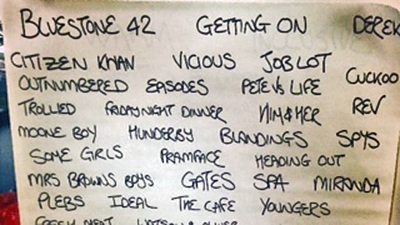 BLUESTONE 42 GETTING ON DEREK
CITIZEN KHAN VICIOUS JOB LOT CUCKOO
OUTNUMBERED EPISODES PETE'S LIFE
TROLLIED FRIDAY NIGHT DINNER HIM & HER REV
MOONE BOY HUNDERBY BLANDINGS SPYS
SOME GIRLS PRAMFACE HEADING OUT
MRS BROWNS BOYS GATES SPA MIRANDA
PLEBS IDEAL THE CAFE YOUNGERS